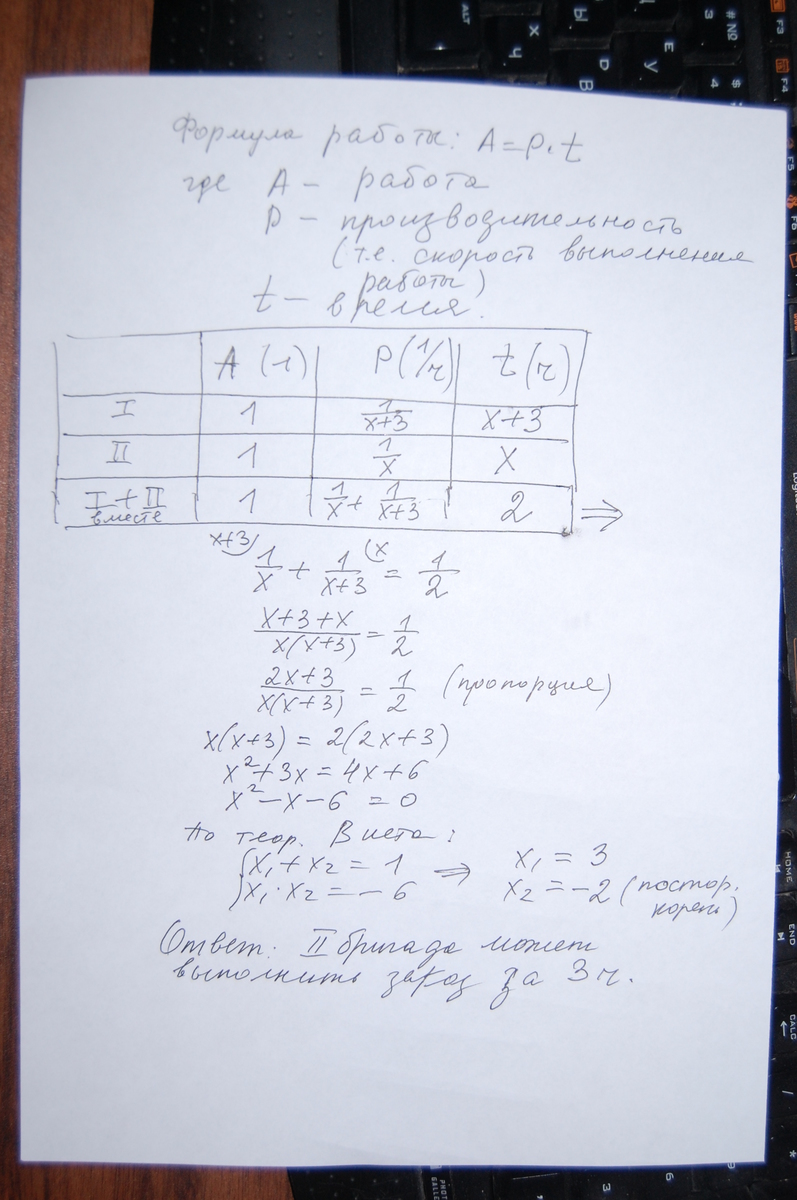 Формула работы: A = P · t
где A – работа
P – производительность
(т.е. скорость выполнения
работы)
t – время.
A (1) P (1/ч) t (ч)
I 1 1/(x+3) x+3
II 1 1/x x
I + II вместе 1 1/x + 1/(x+3) 2 ⇒
x+3) 1/x + 1/(x+3) (x = 1/2
(x+3+x)/(x(x+3)) = 1/2
(2x+3)/(x(x+3)) = 1/2 (пропорция)
x(x+3) = 2(2x+3)
x² + 3x = 4x + 6
x² – x – 6 = 0
По теор. Виета:
{x₁ + x₂ = 1 ⇒ x₁ = 3
{x₁ · x₂ = – 6 x₂ = –2 (постор.
корень)
Ответ: II бригада может
выполнить заказ за 3 ч.
ALT
Ч
X
Ы
D
В
У
Е
3
4
# №
$
F3
F4
F5
F6
HOME
END
CALC